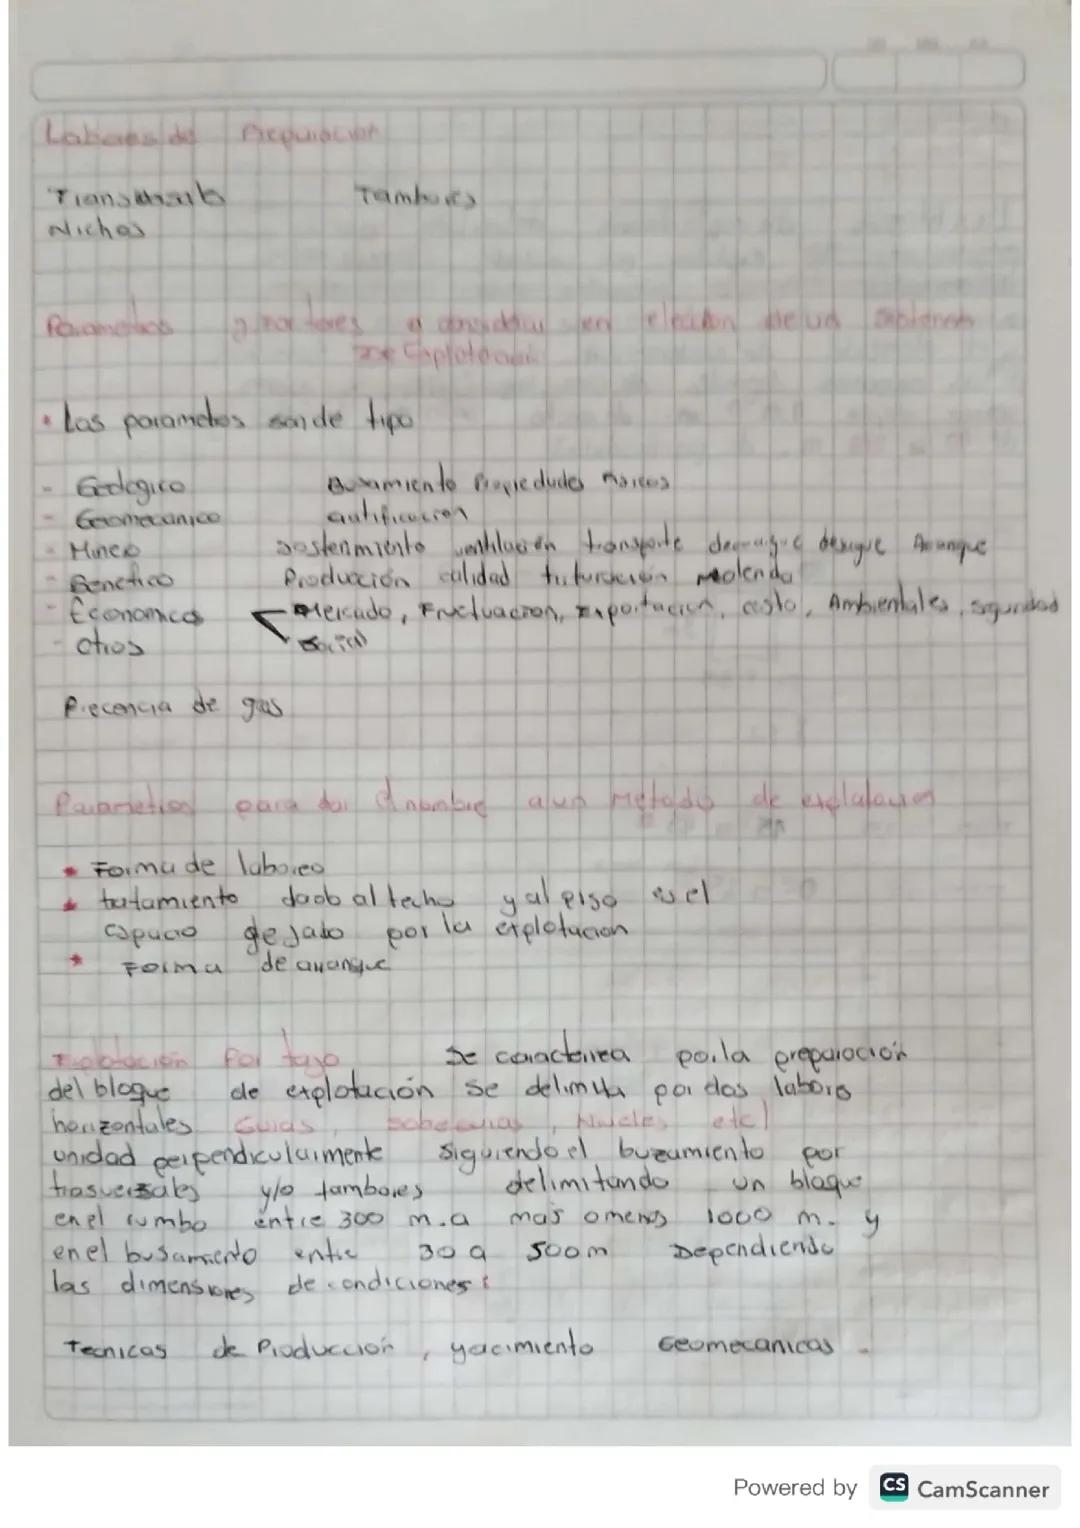 Labores de Preparacion
Transversales Tambores
Nichos
Parametros y factores a considerar en eleccion de un sistema
de Explotacion
• Los parametros son de tipo
- Geologico Busamiento Propiedades fisicas
- Geomecanico
- Minero Sostenimiento ventilacion transporte desague Arranque
- Benefico Producción calidad trituracion Molenda
- Economicos Mercado, Fructuacion, Exportacion, costo, Ambientales, seguridad
- Otros Social
Precencia de gas
Parametros para dar el nombre a un Metodo de explatacion
* Forma de laboreo
* tratamiento dado al techo y al piso es el
espacio dejado por la explotacion
* Forma de arranque
Explotación Por tajo Se caracteriza por la preparación
del bloque de explotación se delimita por dos labores
horizontales Guias, sobreguias, Niveles etc)
unidad perpendicularmente siguiendo el buzamiento por
trasversales y/o tambores delimitando un bloque
en el rumbo entre 300 m.a mas o menos 1000 m. y
en el busamiento entre 30 a 500m Dependiendo
las dimensiones de condiciones:
Tecnicas de Producción, yacimiento Geomecanicas.
Powered by CS CamScanner